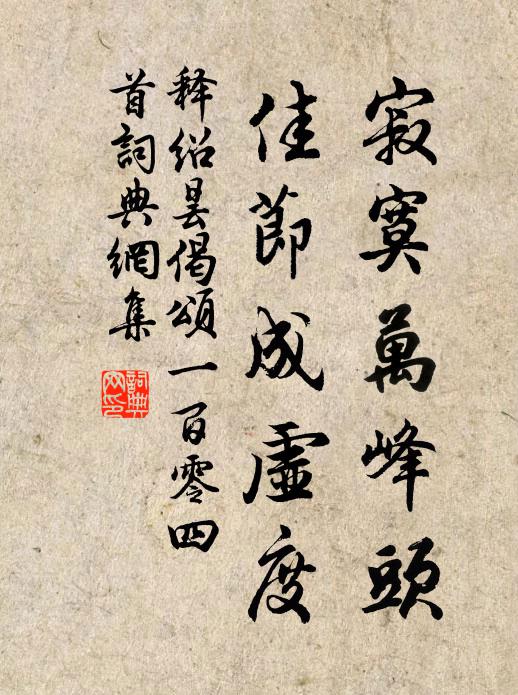 寂寞萬峰頭
佳節成虛度
释紹昙偈頌一百零四
首詞典網集
詞典
网印